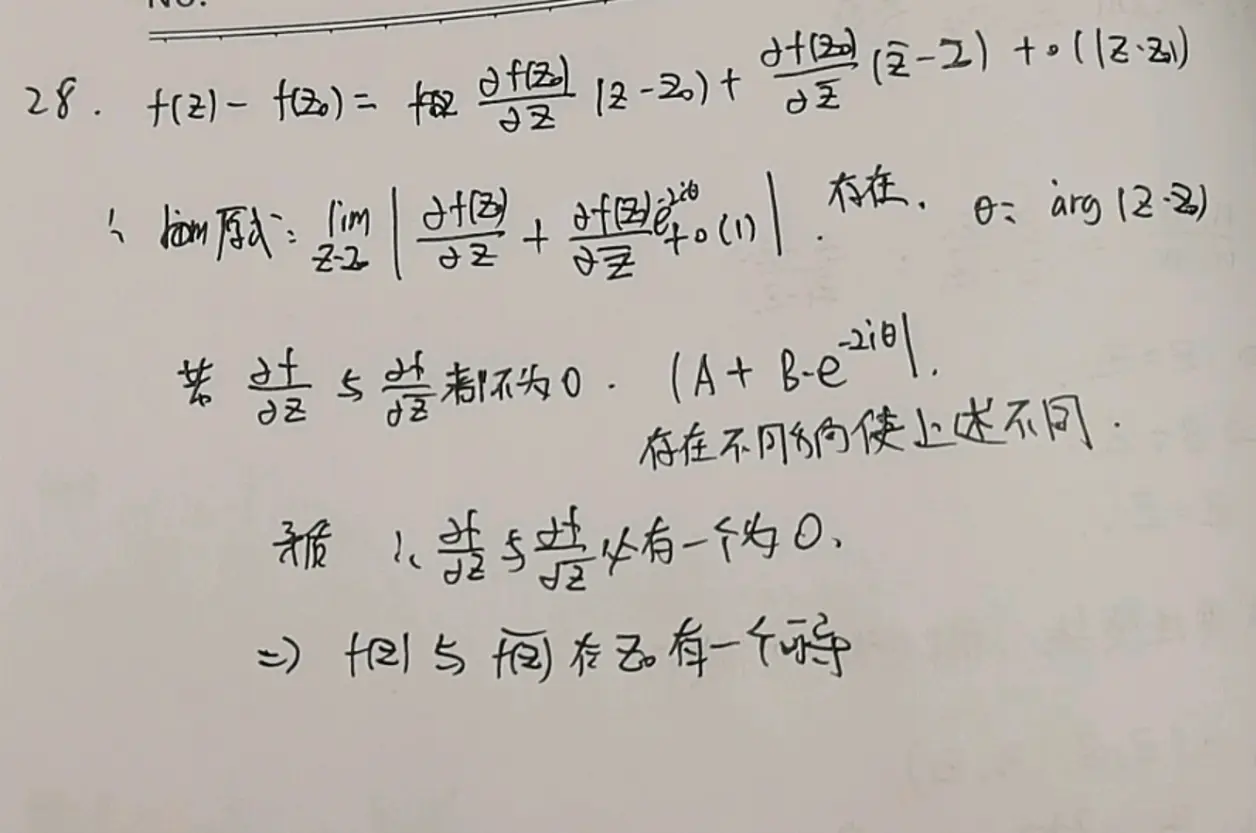 No.
28. f(z) - f(z₀) = ∂f(z₀)/∂z (z - z₀) + ∂f(z₀)/∂z̄ (z̄ - z) + o(|z - z₀|)
∴ lim原式 = lim z→z₀ |∂f(z)/∂z + ∂f(z)/∂z̄ e^{-2iθ} + o(1)| 存在. θ = arg(z - z₀)
若 ∂f/∂z 与 ∂f/∂z̄ 都不为0. |A + B·e^{-2iθ}|.
存在不同方向使上述不同.
矛盾 ∴ ∂f/∂z 与 ∂f/∂z̄ 必有一个为0.
⇒ f(z) 与 f̅(̅z̅)̅ 在 z₀ 有一个可导